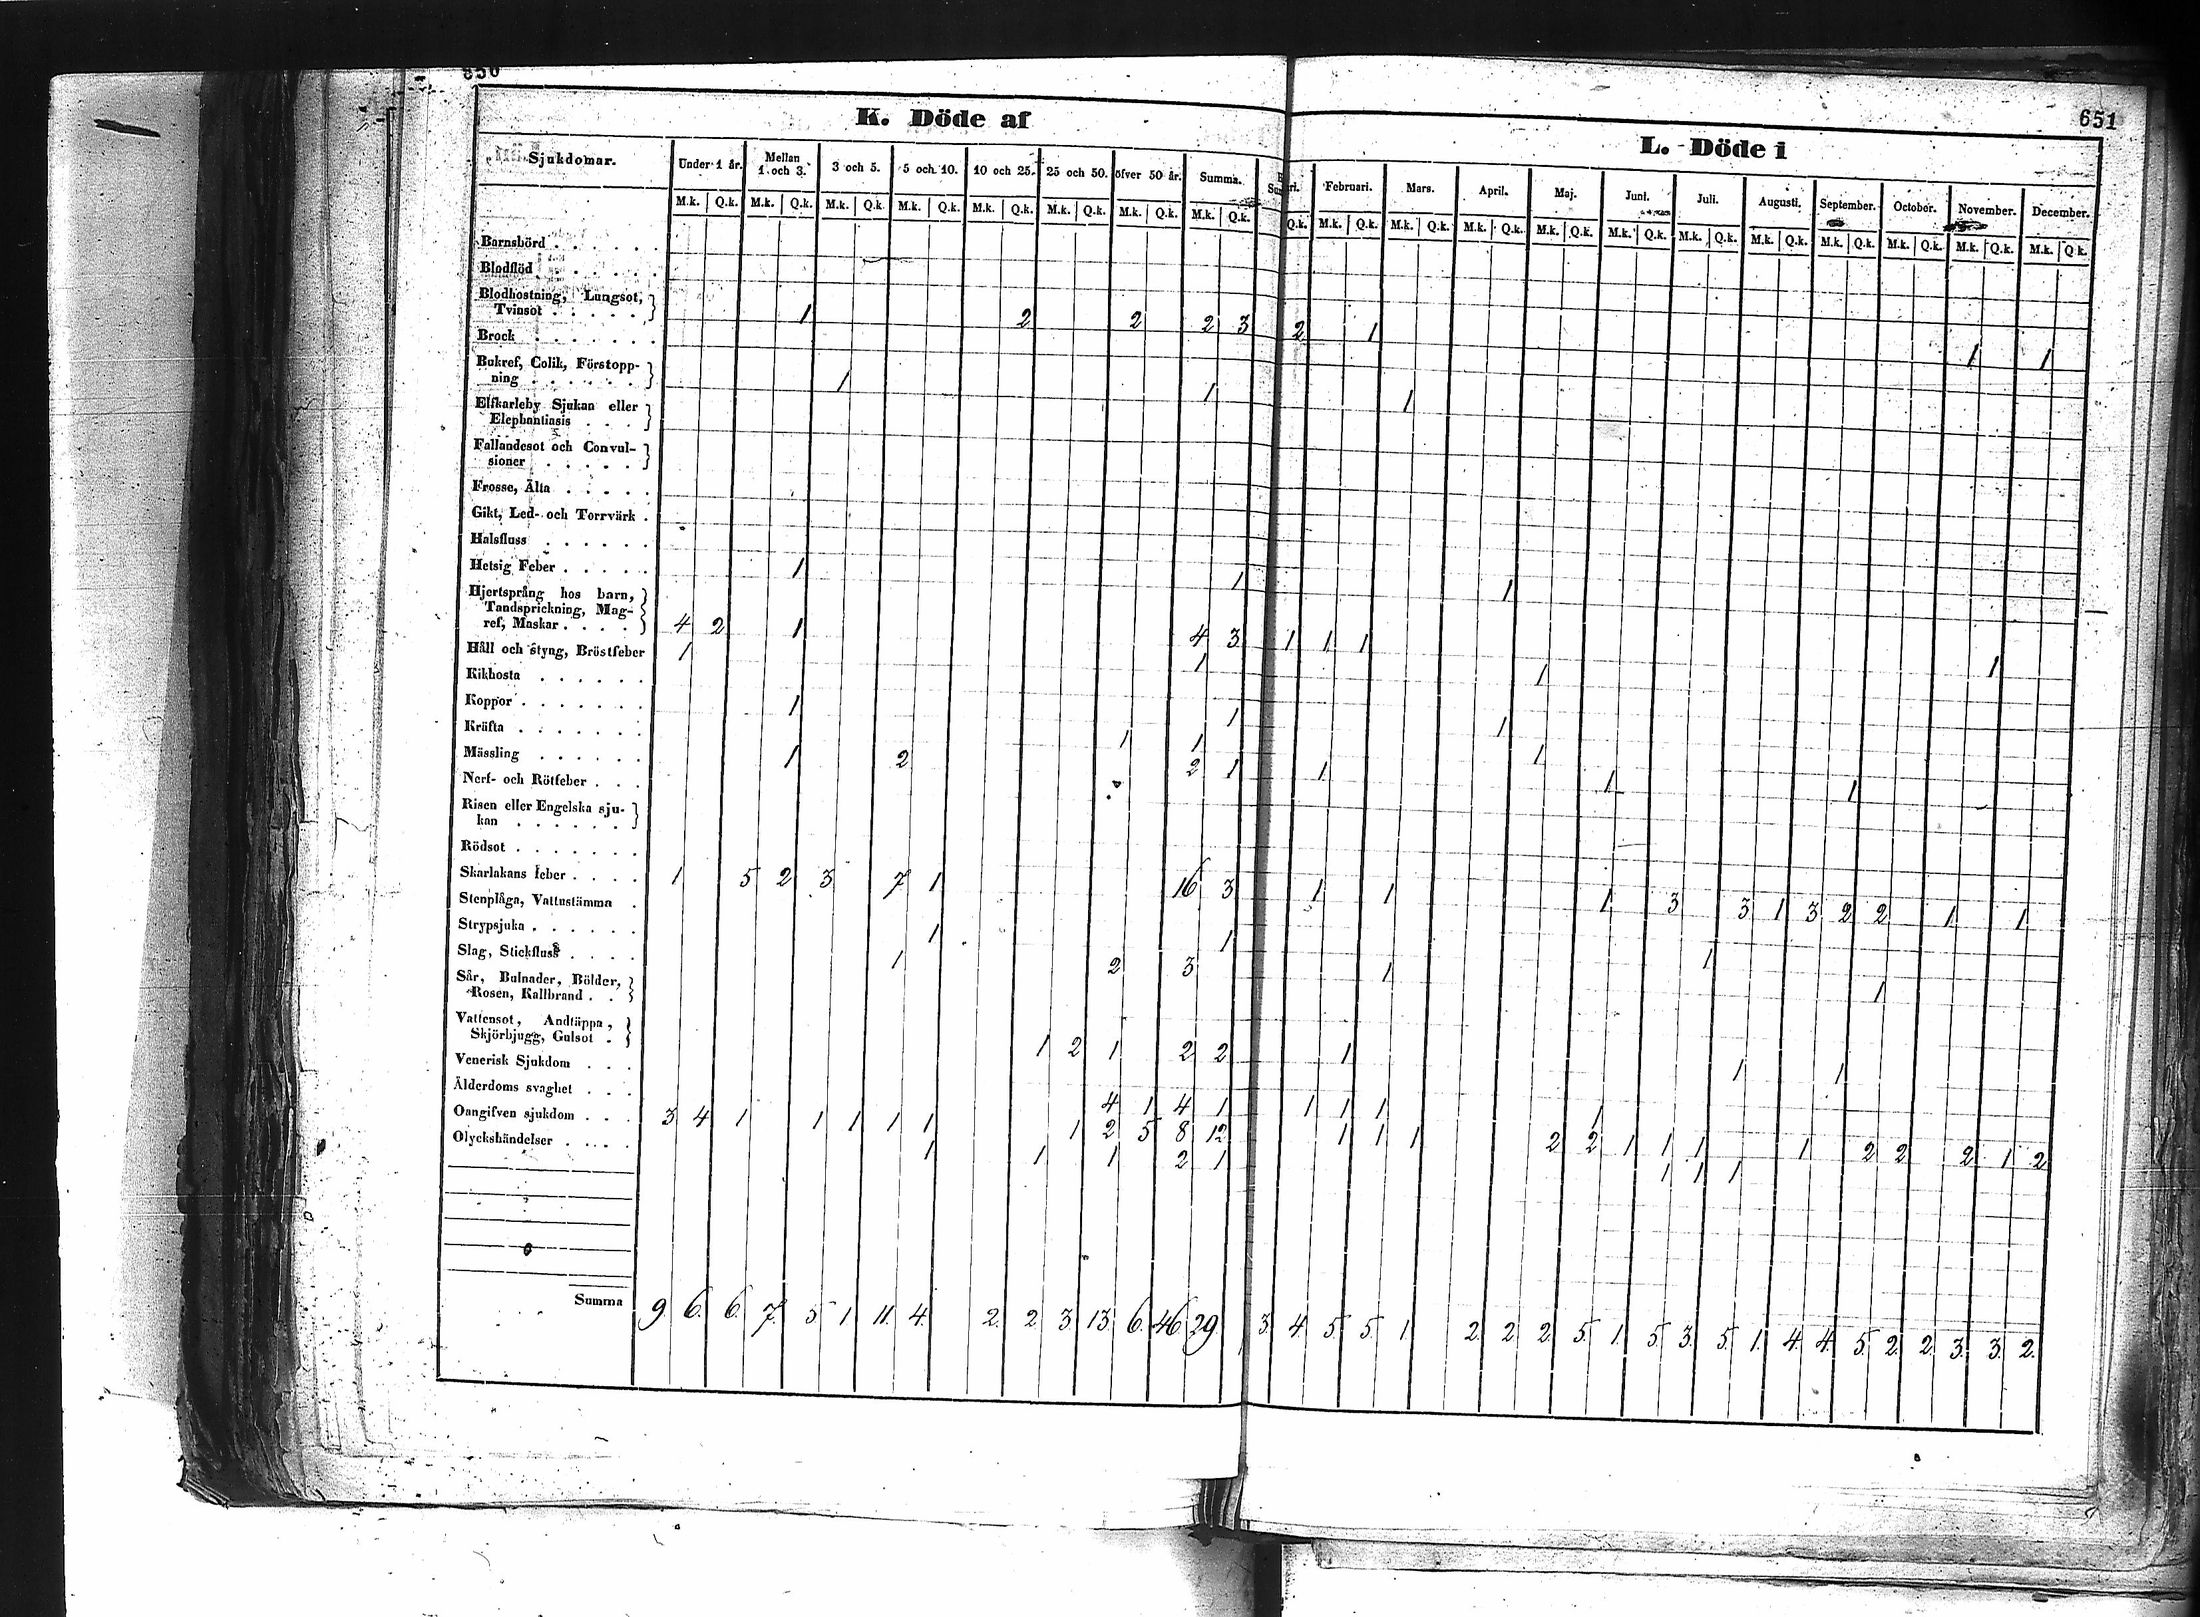 651
K. Döde af
L. Döde i
Sjukdomar. Under 1 år. Mellan 1 och 3. 3 och 5. 5 och 10. 10 och 25. 25 och 50. öfver 50 år. Summa. Februari. Mars. April. Maj. Juni. Juli. Augusti. September. October. November. December.
M.k. Q.k. M.k. Q.k. M.k. Q.k. M.k. Q.k. M.k. Q.k. M.k. Q.k. M.k. Q.k. M.k. Q.k. Q.k. M.k. Q.k. M.k. Q.k. M.k. Q.k. M.k. Q.k. M.k. Q.k. M.k. Q.k. M.k. Q.k. M.k. Q.k. M.k. Q.k. M.k. Q.k. M.k. Q.k.
Barnsbörd
Blodflöd
Blodhostning, Lungsot,
Tvinsot 1 2 2 2 3 2 1 1 1
Brock
Bukref, Colik, Förstopp-
ning 1 1 1
Elfkarleby Sjukan eller
Elephantiasis
Fallandesot och Convul-
sioner
Frosse, Älta
Gikt, Led- och Torrvärk
Halsfluss
Hetsig Feber 1 1 1
Hjertsprång hos barn,
Tandsprickning, Mag-
ref, Maskar 4 2 1 4 3 1 1 1 1
Håll och styng, Bröstfeber 1 1 1
Kikhosta
Koppor 1 1 1
Kräfta 1 1 1
Mässling 1 2 2 1 1 1 1
Nerf- och Rötfeber
Risen eller Engelska sju-
kan
Rödsot
Skarlakans feber 1 5 2 3 7 1 16 3 1 1 1 3 3 1 3 2 2 1 1
Stenplåga, Vattustämma
Strypsjuka 1 1 1
Slag, Stickfluss 1 2 3 1 1
Sår, Bulnader, Bölder,
Rosen, Kallbrand
Vattensot, Andtäppa,
Skjörbjugg, Gulsot 1 2 1 2 2 1 1 1
Venerisk Sjukdom
Ålderdoms svaghet 4 1 4 1 1 1 1 1
Oangifven sjukdom 3 4 1 1 1 1 1 1 2 5 8 12 1 1 1 2 2 1 1 1 1 2 2 2 1 2
Olyckshändelser 1 1 1 2 1 1 1 1
Summa 9. 6. 6. 7. 5 1 11. 4. 2. 2 3 13. 6. 46 29. 3. 4. 5 5. 1. 2. 2 2 5. 1. 5. 3. 5. 1. 4. 4. 5. 2. 2. 3. 3. 2.